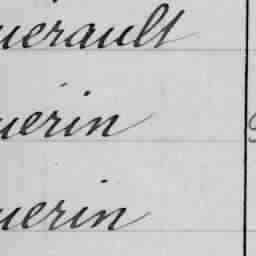 uerault
uérin
uerin